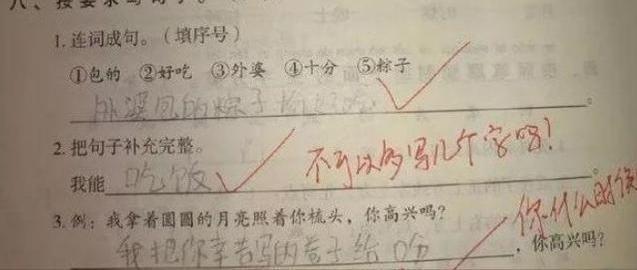 八、按要求写句子。
1. 连词成句。（填序号）
①包的 ②好吃 ③外婆 ④十分 ⑤粽子
外婆包的粽子十分好吃。
2. 把句子补充完整。
不可以多写几个字吗！
我能吃饭。
你什么时候
3. 例：我拿着圆圆的月亮照着你梳头，你高兴吗？
我把你辛苦写的卷子给吃，你高兴吗？